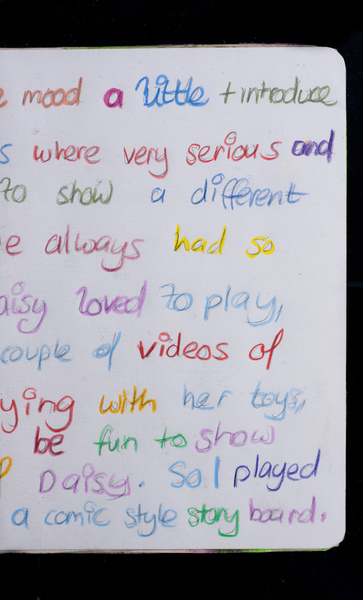 mood a little + introduce
s where very serious and
to show a different
e always had so
aisy loved to play,
couple of videos of
ying with her toys,
be fun to show
Daisy. So I played
a comic style story board.